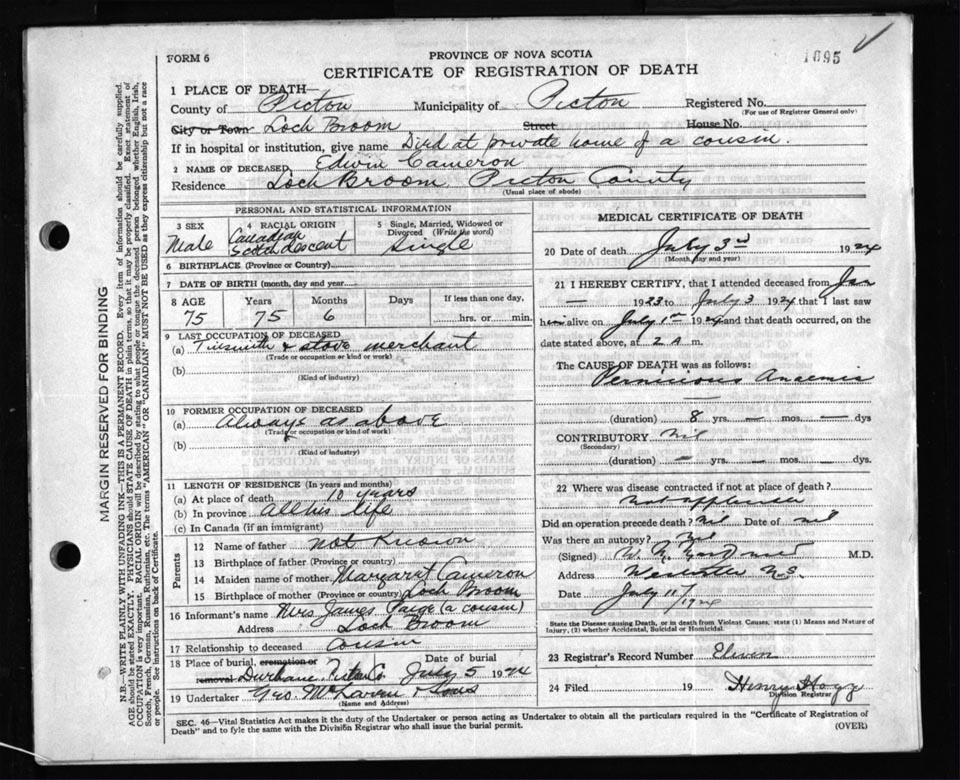 1695
FORM 6
PROVINCE OF NOVA SCOTIA
CERTIFICATE OF REGISTRATION OF DEATH
1 PLACE OF DEATH—
County of Pictou Municipality of Pictou Registered No.
(For use of Registrar General only)
City or Town Loch Broom Street House No.
If in hospital or institution, give name Died at private home of a cousin.
2 NAME OF DECEASED Edwin Cameron
Residence Loch Broom, Pictou County
(Usual place of abode)
PERSONAL AND STATISTICAL INFORMATION
3 SEX Male
4 RACIAL ORIGIN Canadian Scotch descent
5 Single, Married, Widowed or Divorced (Write the word) Single
6 BIRTHPLACE (Province or Country)
7 DATE OF BIRTH (month, day and year)
8 AGE Years Months Days If less than one day,
75 75 6 hrs. or min.
9 LAST OCCUPATION OF DECEASED
(a) Tinsmith & stove merchant
(Trade or occupation or kind of work)
(b)
(Kind of industry)
10 FORMER OCCUPATION OF DECEASED
(a) Always as above
(Trade or occupation or kind of work)
(b)
(Kind of industry)
11 LENGTH OF RESIDENCE (In years and months)
(a) At place of death 10 years
(b) In province all his life
(c) In Canada (if an immigrant)
Parents
12 Name of father not Known
13 Birthplace of father (Province or country)
14 Maiden name of mother Margaret Cameron
15 Birthplace of mother (Province or country) Loch Broom
16 Informant's name Mrs James Paige (a cousin)
Address Loch Broom
17 Relationship to deceased cousin
18 Place of burial, cremation or removal Durham Pictou Co. Date of burial July 5 1924
19 Undertaker Geo. McLaren & Sons
(Name and Address)
MEDICAL CERTIFICATE OF DEATH
20 Date of death July 3rd 1924
(Month, day and year)
21 I HEREBY CERTIFY, that I attended deceased from Jan
— 1923 to July 3 1924 that I last saw
him alive on July 1st 1924 and that death occurred, on
date stated above, at 2 A m.
The CAUSE OF DEATH was as follows:
Pernicious Anaemia
(duration) 8 yrs. — mos. — dys
CONTRIBUTORY Nil
(Secondary)
(duration) — yrs. — mos. — dys.
22 Where was disease contracted if not at place of death?
Not applicable
Did an operation precede death? nil Date of nil
Was there an autopsy? Nil
(Signed) M.D.
Address N.S.
Date July 11/1924
State the Disease causing Death, or in death from Violent Causes, state (1) Means and Nature of
Injury, (2) whether Accidental, Suicidal or Homicidal.
23 Registrar's Record Number Eleven
24 Filed 19 Henry Hogg
Division Registrar
SEC. 46—Vital Statistics Act makes it the duty of the Undertaker or person acting as Undertaker to obtain all the particulars required in the "Certificate of Registration of
Death" and to fyle the same with the Division Registrar who shall issue the burial permit.
(OVER)
MARGIN RESERVED FOR BINDING
N.B.—WRITE PLAINLY WITH UNFADING INK—THIS IS A PERMANENT RECORD. Every item of information should be carefully supplied.
AGE should be stated EXACTLY. PHYSICIANS should STATE CAUSE OF DEATH in plain terms, so that it may be properly classified. Exact statement of
OCCUPATION is very important. RACIAL ORIGIN will be described by stating to what people or tongue the deceased person belonged whether English, Irish,
Scotch, French, German, Russian, Ruthenian, etc. The terms "AMERICAN" OR "CANADIAN" MUST NOT BE USED as they express citizenship but not a race
or people. See instructions on back of Certificate.